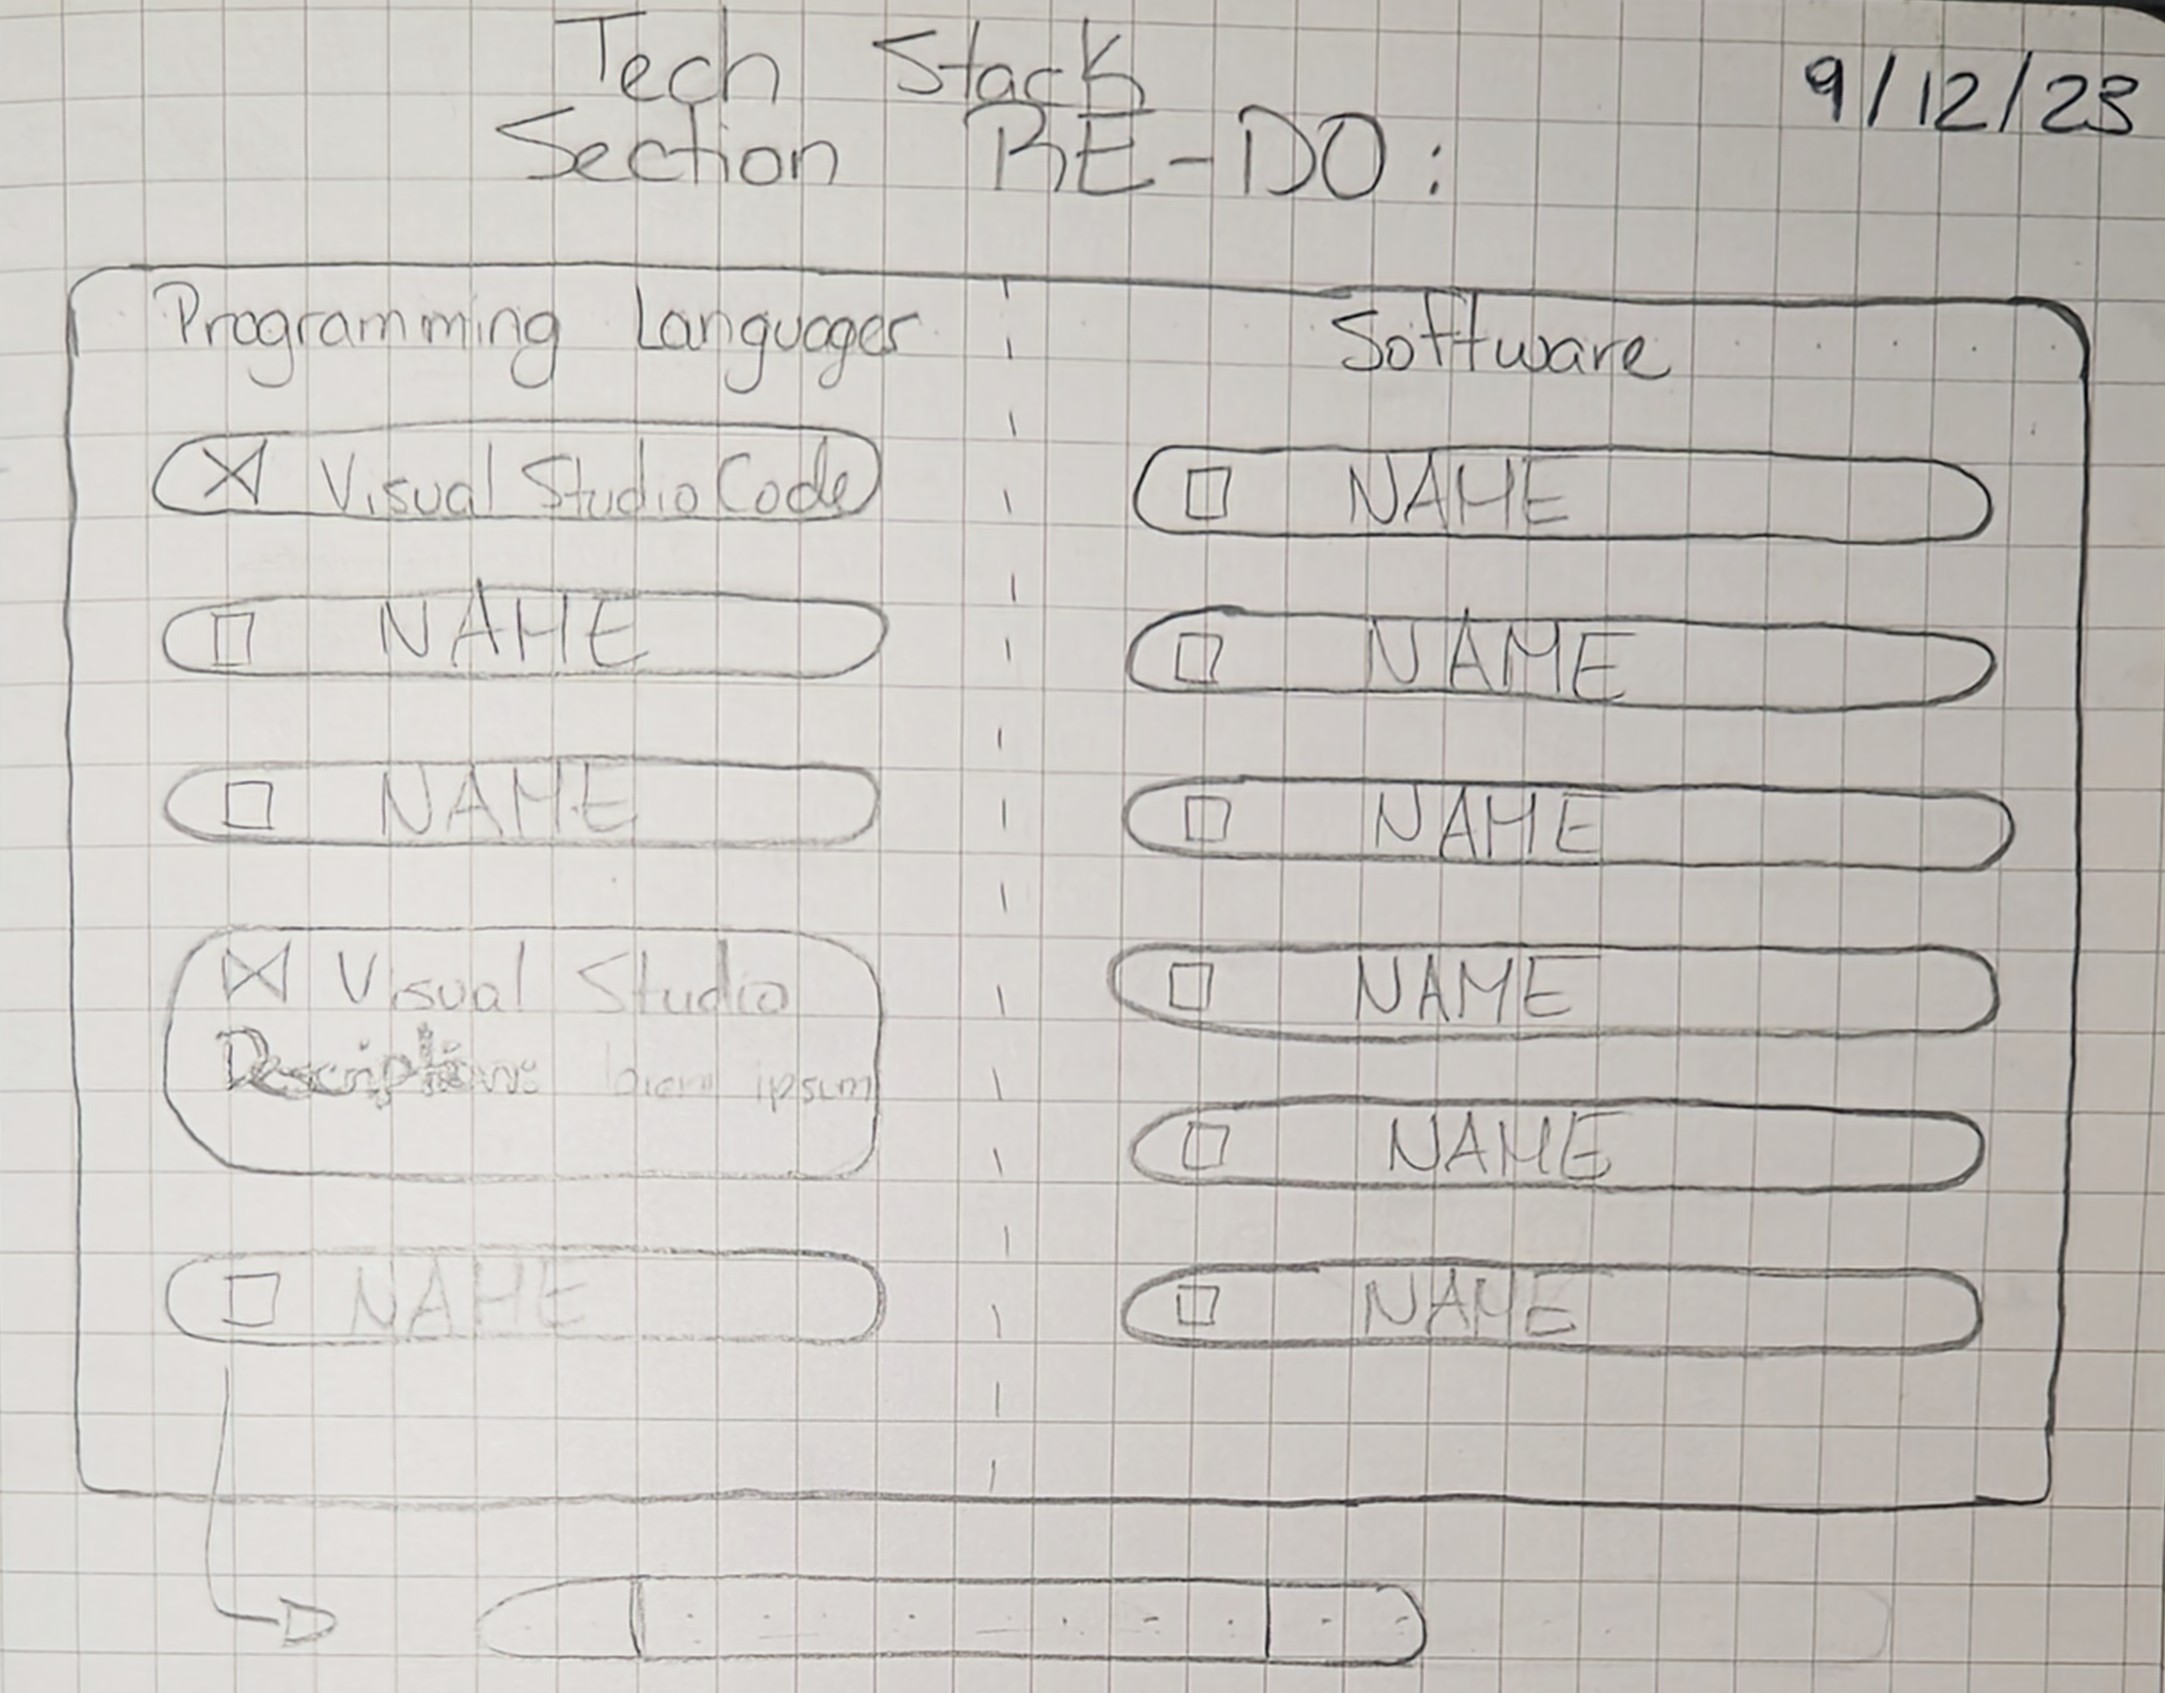 Tech Stack
9/12/23
Section RE-DO:
Programming Languages
Software
Visual Studio Code
NAME
NAME
Visual Studio
Description: lorem ipsum
NAME
NAME
NAME
NAME
NAME
NAME
NAME